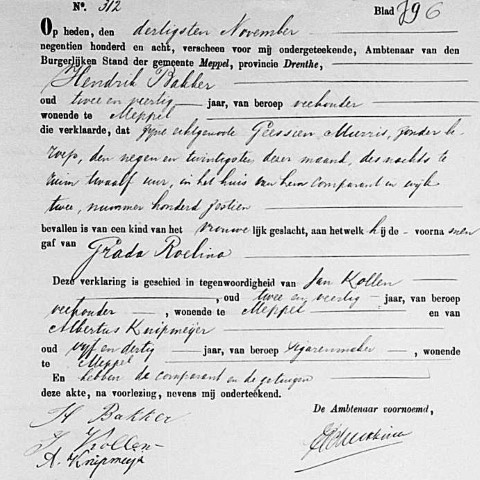 No. 312 Blad 396
Op heden, den dertigsten November
negentien honderd en acht, verscheen voor mij ondergeteekende, Ambtenaar van den
Burgerlijken Stand der gemeente Meppel, provincie Drenthe,
Hendrik Bakker
oud twee en veertig jaar, van beroep veehouder
wonende te Meppel
die verklaarde, dat zijne echtgenoote Geessien Murris, zonder be-
roep, den negen en twintigsten dezer maand, des nachts te
ruim twaalf ure, in het huis van hem comparant en wijk
twee, nummer honderd zestien
bevallen is van een kind van het vrouwelijk geslacht, aan hetwelk hij de voornamen
gaf van Grada Roelina
Deze verklaring is geschied in tegenwoordigheid van Jan Kollen
, oud twee en veertig jaar, van beroep
veehouder, wonende te Meppel en van
Albertus Knipmeijer
oud vijf en dertig jaar, van beroep sigarenmaker, wonende
te Meppel
En hebben de comparant en de getuigen
deze akte, na voorlezing, nevens mij onderteekend.
De Ambtenaar voornoemd,
H Bakker
J Kollen
A. Knipmeijer